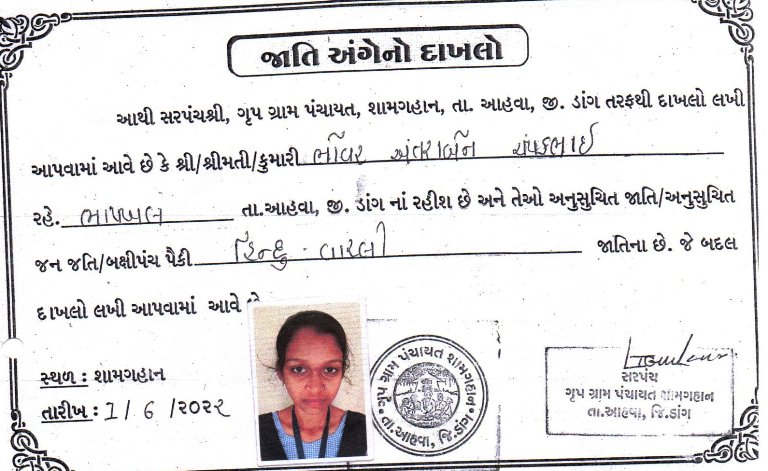 જાતિ અંગેનો દાખલો
આથી સરપંચશ્રી, ગૃપ ગ્રામ પંચાયત, શામગહાન, તા. આહવા, જી. ડાંગ તરફથી દાખલો લખી
આપવામાં આવે છે કે શ્રી/શ્રીમતી/કુમારી ભોવર ચંપકભાઈ
રહે. ભાપખલ તા.આહવા, જી. ડાંગ નાં રહીશ છે અને તેઓ અનુસુચિત જાતિ/અનુસુચિત
જન જતિ/બક્ષીપંચ પૈકી હિન્દુ - વારલી જાતિના છે. જે બદલ
દાખલો લખી આપવામાં આવે છે
સ્થળ : શામગહાન
તારીખ : 1/6/૨૦૨૨
ગૃપ ગ્રામ પંચાયત શામગહાન
તા.આહવા, જિ.ડાંગ
સરપંચ
ગૃપ ગ્રામ પંચાયત શામગહાન
તા.આહવા, જિ.ડાંગ